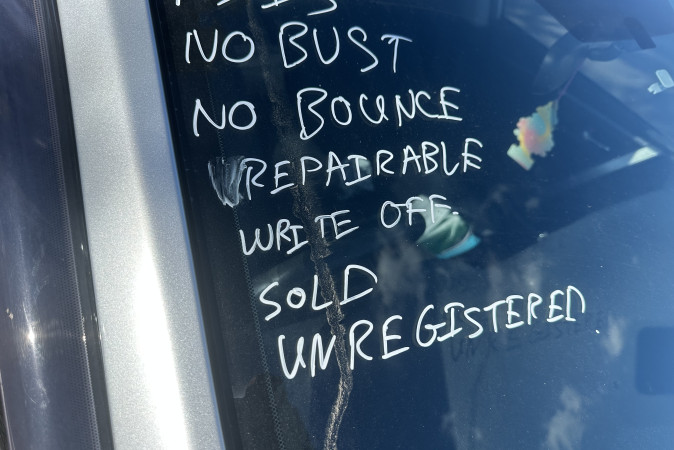 NO BUST
NO BOUNCE
REPAIRABLE
WRITE OFF.
SOLD
UNREGISTERED.